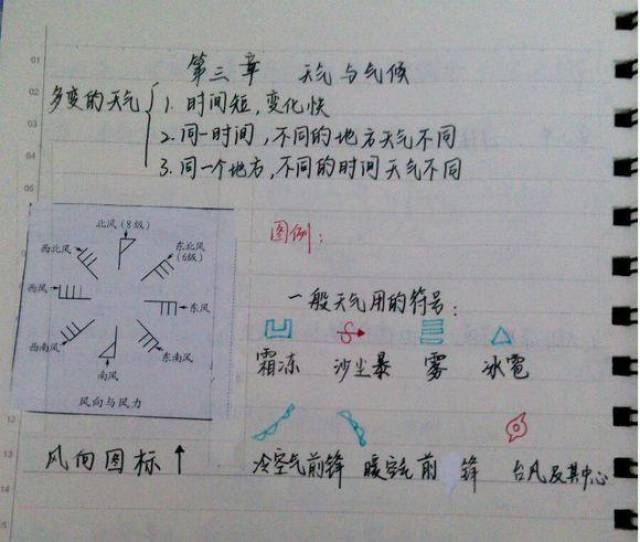 第三章 天气与气候
多变的天气 1. 时间短,变化快
2. 同一时间,不同的地方天气不同
3. 同一个地方,不同的时间天气不同
图例:
北风(8级)
西北风
东北风(6级)
西风
东风
西南风
东南风
南风
风向与风力
一般天气用的符号:
霜冻 沙尘暴 雾 冰雹
风向图标↑
冷空气前锋 暖空气前锋 台风及其中心
01
02
03
04
05
12
13
14